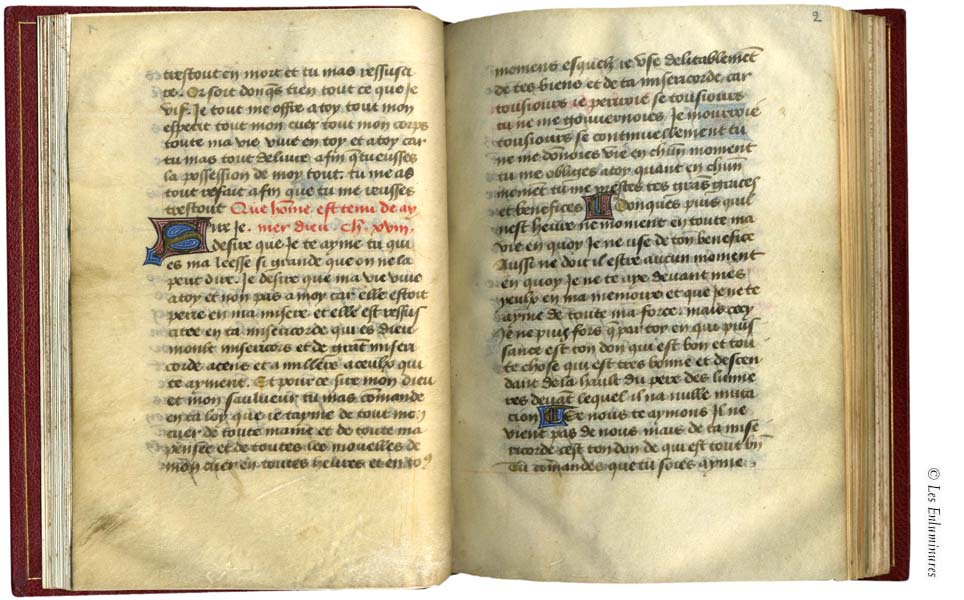 trestout en mort et tu mas ressusci
te. Or soit donqs tien tout ce que je
vif. Je tout me offre a toy tout mon
esperit tout mon cuer tout mon corps
toute ma vie vive en toy et a toy car
tu mas tout delivre afin q tu eusses
la possession de moy tout. tu me as
tout refait afin que tu me reusses
trestout Que home est tenu de ay
Sire je. mer dieu. Ch. xviii.
desire que Je te ayme tu qui
es ma leesse si grande que on ne la
peut dire. Je desire que ma vie vive
a toy et non pas a moy car elle estoit
perie en ma misere et elle est ressus
citee en ta misericorde qui es dieu
moult misericors et de grant miseri
corde a cens et a milliers a ceulx qui
te ayment. Et pour ce sire mon dieu
et mon saulveur tu mas comande
en ta loy que ie tayme de tout mo
cuer de toute mame et de toute ma
pensee et de toutes les mouelles de
mon cuer en toutes heures et en to
2
momens esquelz ie use delitablement
de tes biens et de ta misericorde. car
tousiours ie periroie se tousiours
tu ne me gouvernoies. Je mourroie
tousiours se continuellement tu
ne me donoies vie en chun moment
tu me obliges a toy quant en chun
momet tu me prestes tes grans graces
et benefices Donques puis quil
nest heure ne moment en toute ma
vie en quoy Je ne use de ton benefice
Aussi ne doit il estre aucun moment
en quoy Je ne te aye devant mes
yeulx en ma memoire et que Je ne te
ayme de toute ma force. mais cecy
Je ne puis fors q par toy en qui puis
sance est ton don qui est bon et tou
te chose qui est tres bonne et descen
dant de la hault du pere des lumie
res devat lequel il na nulle muta
cion Ce nous te aymons Il ne
vient pas de nous mais de ta mise
ricorde cest ton don de qui est tout bn
Tu comandes que tu soies ayme
© Les Enluminures